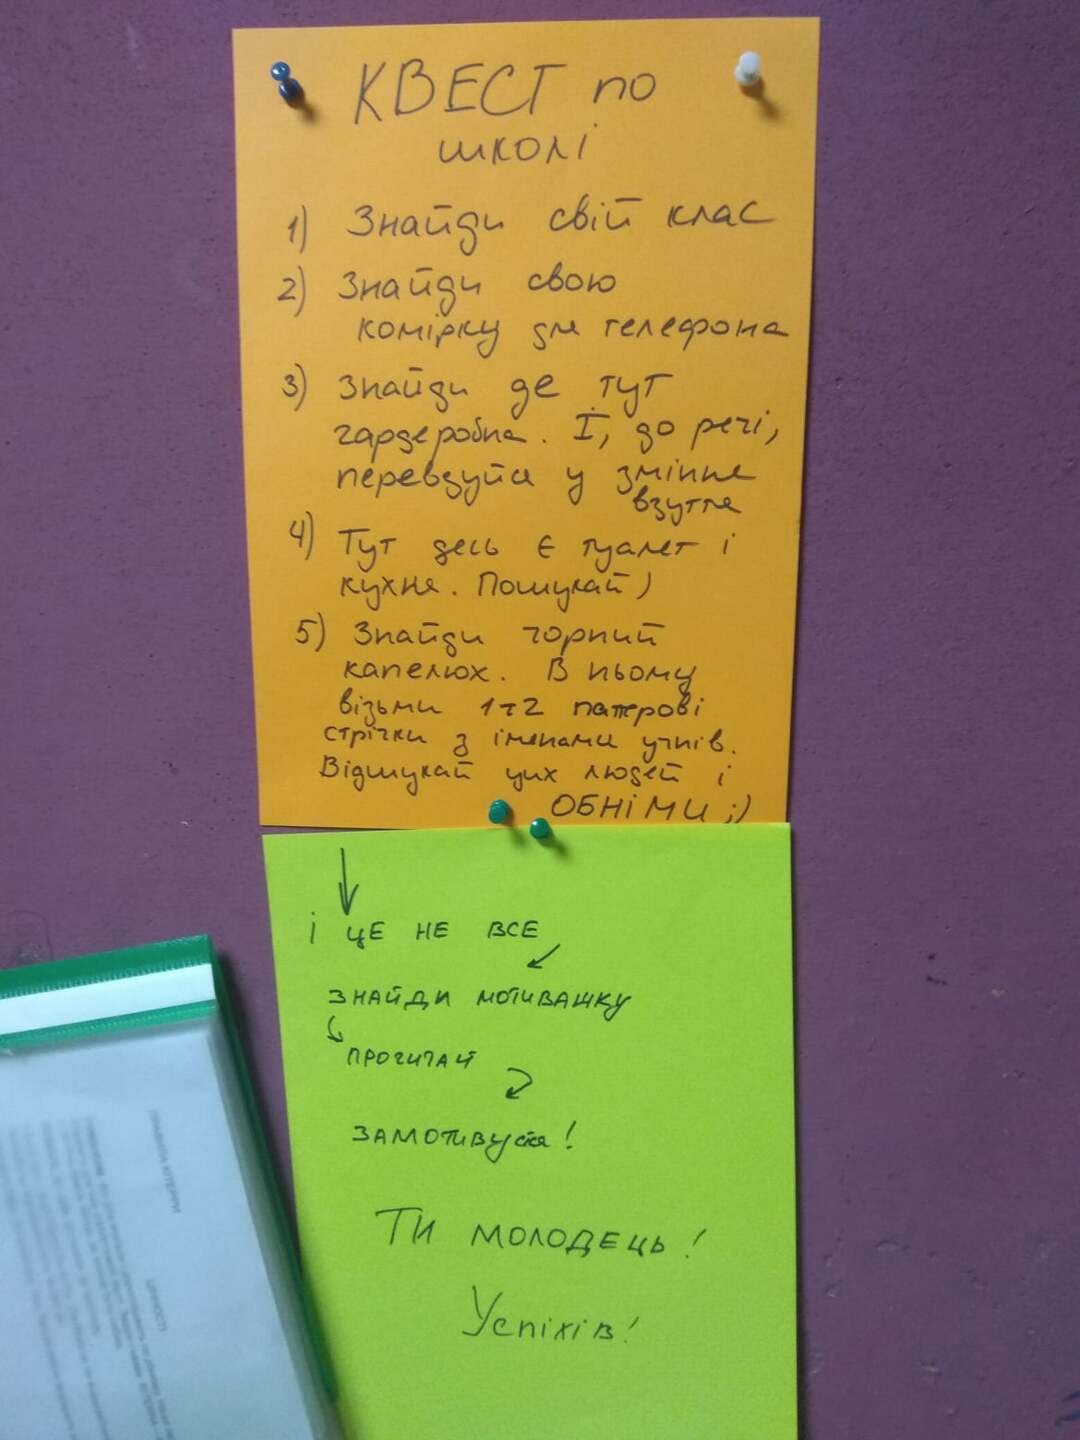 КВЕСТ по
школі
1) Знайди свій клас
2) Знайди свою
комірку для телефона
3) Знайди де тут
гардеробна. І, до речі,
перевзуйся у змінне
взуття
4) Тут десь є туалет і
кухня. Пошукай)
5) Знайди чорний
капелюх. В ньому
візьми 1-2 паперові
стрічки з іменами учнів.
Відшукай цих людей і
ОБНІМИ ;)
І ЦЕ НЕ ВСЕ
ЗНАЙДИ МОТИВАШКУ
ПРОЧИТАЙ
ЗАМОТИВУЙСЯ!
ТИ МОЛОДЕЦЬ!
Успіхів!
ЦІННОСТІ